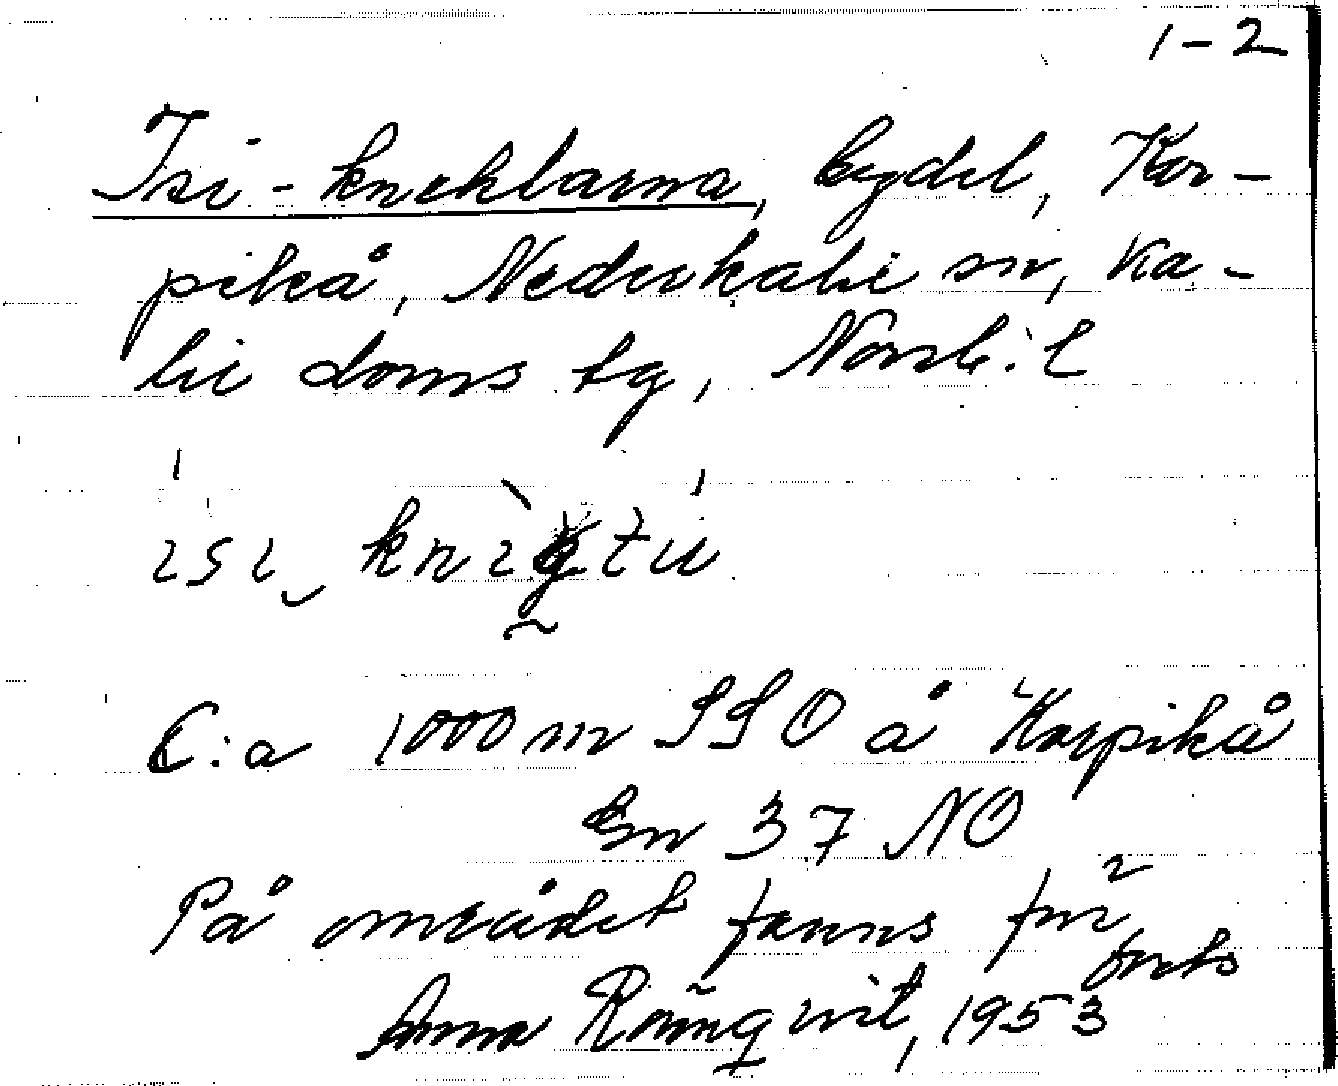 1-2
Isi-knektarna, bydel, Kor-
pikå, Nederkalix sn, Ka-
lix doms tg, Norrb. l
C:a 1000 m SSO å Korpikå
Gn 37 NO
På området fanns för
forts
Anna Rönnqvist, 1953